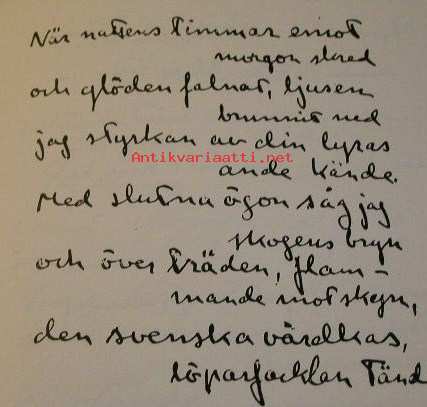 När nattens timmar emot
morgon skred
och glöden falnat, ljusen
brunnit ned
jag styrkan av din lyras
Antikvariaatti.net
ande kände.
Med slutna ögon såg jag
skogens bryn
och över träden, flam-
mande mot skyn,
den svenska vårdkas,
löparfacklan tänd